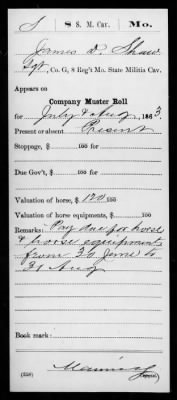 S | 8 S. M. Cav. | Mo.
James D. Shaw
Sgt, Co. G, 8 Reg't Mo. State Militia Cav.
Appears on
Company Muster Roll
for July & Aug, 1863.
Present or absent Present
Stoppage, $ 100 for
Due Gov't, $ 100 for
Valuation of horse, $ 120/100
Valuation of horse equipments, $ 100
Remarks: Pay due for horse
& horse equipments
from 30 June to
31 Aug
Book mark:
(358)
Copyist.